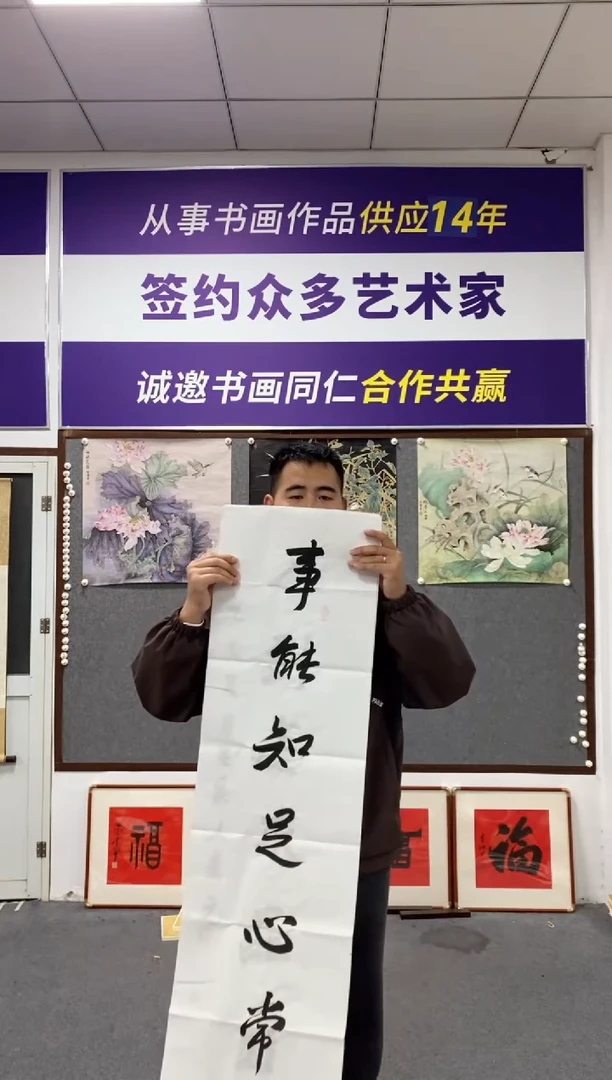 从事书画作品供应14年
签约众多艺术家
诚邀书画同仁合作共赢
事能知足心常
福
福